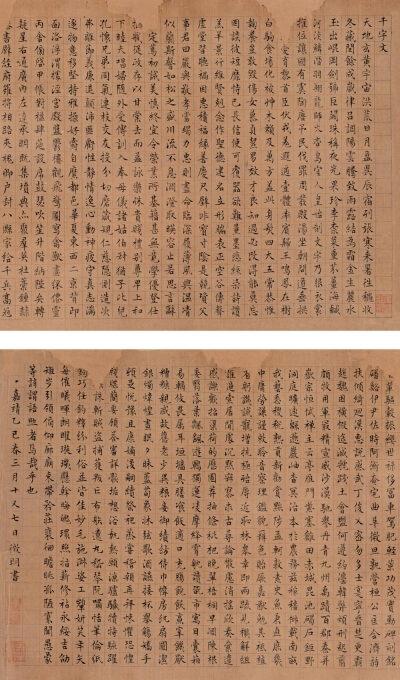 千字文
天地玄黃宇宙洪荒日月盈昃辰宿列張寒來暑往秋收
冬藏閏餘成歲律呂調陽雲騰致雨露結為霜金生麗水
玉出崐岡劍號巨闕珠稱夜光果珍李柰菜重芥薑海鹹
河淡鱗潛羽翔龍師火帝鳥官人皇始制文字乃服衣裳
推位讓國有虞陶唐弔民伐罪周發殷湯坐朝問道垂拱
愛育黎首臣伏戎羌遐邇壹體率賓歸王鳴鳳在樹
白駒食場化被草木賴及萬方蓋此身髮四大五常恭惟
鞠養豈敢毀傷女慕貞絜男效才良知過必改得能莫忘
罔談彼短靡恃己長信使可覆器欲難量墨悲絲染詩讚
羔羊景行維賢剋念作聖德建名立形端表正空谷傳聲
虛堂習聽禍因惡積福緣善慶尺璧非寶寸陰是競資父
事君曰嚴與敬孝當竭力忠則盡命臨深履薄夙興溫凊
似蘭斯馨如松之盛川流不息淵澄取映容止若思言辭
定篤初誠美慎終宜令榮業所基藉甚無竟學優登仕
攝職從政存以甘棠去而益詠樂殊貴賤禮別尊卑上和
下睦夫唱婦隨外受傅訓入奉母儀諸姑伯叔猶子比兒
孔懷兄弟同氣連枝交友投分切磨箴規仁慈隱惻造次
弗離節義廉退顛沛匪虧性靜情逸心動神疲守真志滿
逐物意移堅持雅操好爵自縻都邑華夏東西二京背邙
面洛浮渭據涇宮殿盤鬱樓觀飛驚圖寫禽獸畫綵僊靈
丙舍傍啟甲帳對楹肆筵設席鼓瑟吹笙升階納陛弁轉
疑星右通廣內左達承明既集墳典亦聚群英杜稿鍾隸漆
書壁經府羅將相路俠槐卿戶封八縣家給千兵高冠
陪輦驅轂振纓世祿侈富車駕肥輕策功茂實勒碑刻銘
磻谿伊尹佐時阿衡奄宅曲阜微旦孰營桓公匡合濟弱
扶傾綺迴漢惠說感武丁俊乂密勿多士寔寧晉楚更霸
趙魏困橫假途滅虢踐土會盟何遵約法韓弊煩刑起翦
頗牧用軍最精宣威沙漠馳譽丹青九州禹跡百郡秦并
嶽宗恒岱禪主云亭雁門紫塞雞田赤城昆池碣石鉅野
洞庭曠遠綿邈巖岫杳冥治本於農務茲稼穡俶載南畝
我藝黍稷稅熟貢新勸賞黜陟孟軻敦素史魚秉直庶幾
中庸勞謙謹敕聆音察理鑑貌辨色貽厥嘉猷勉其祗植
省躬譏誡寵增抗極殆辱近恥林皋幸即兩疏見機解組
誰逼索居閒處沉默寂寥求古尋論散慮逍遙欣奏累遣
慼謝歡招渠荷的歷園莽抽條枇杷晚翠梧桐早凋陳根
委翳落葉飄颻遊鵾獨運凌摩絳霄耽讀翫市寓目囊箱
易輶攸畏屬耳垣牆具膳餐飯適口充腸飽飫烹宰飢厭
糟糠親戚故舊老少異糧妾御績紡侍巾帷房紈扇圓潔
銀燭煒煌晝眠夕寐藍筍象床弦歌酒讌接杯舉觴矯手
頓足悅豫且康嫡後嗣續祭祀蒸嘗稽顙再拜悚懼恐惶
牋牒簡要顧答審詳骸垢想浴執熱願涼驢騾犢特駭躍
超驤誅斬賊盜捕獲叛亡布射遼丸嵇琴阮嘯恬筆倫紙
鈞巧任釣釋紛利俗並皆佳妙毛施淑姿工顰妍笑年矢
每催曦暉朗曜璇璣懸斡晦魄環照指薪修祜永綏吉劭
矩步引領俯仰廊廟束帶矜莊徘徊瞻眺孤陋寡聞愚蒙
等誚謂語助者焉哉乎也
嘉靖乙巳春三月十又七日徵明書